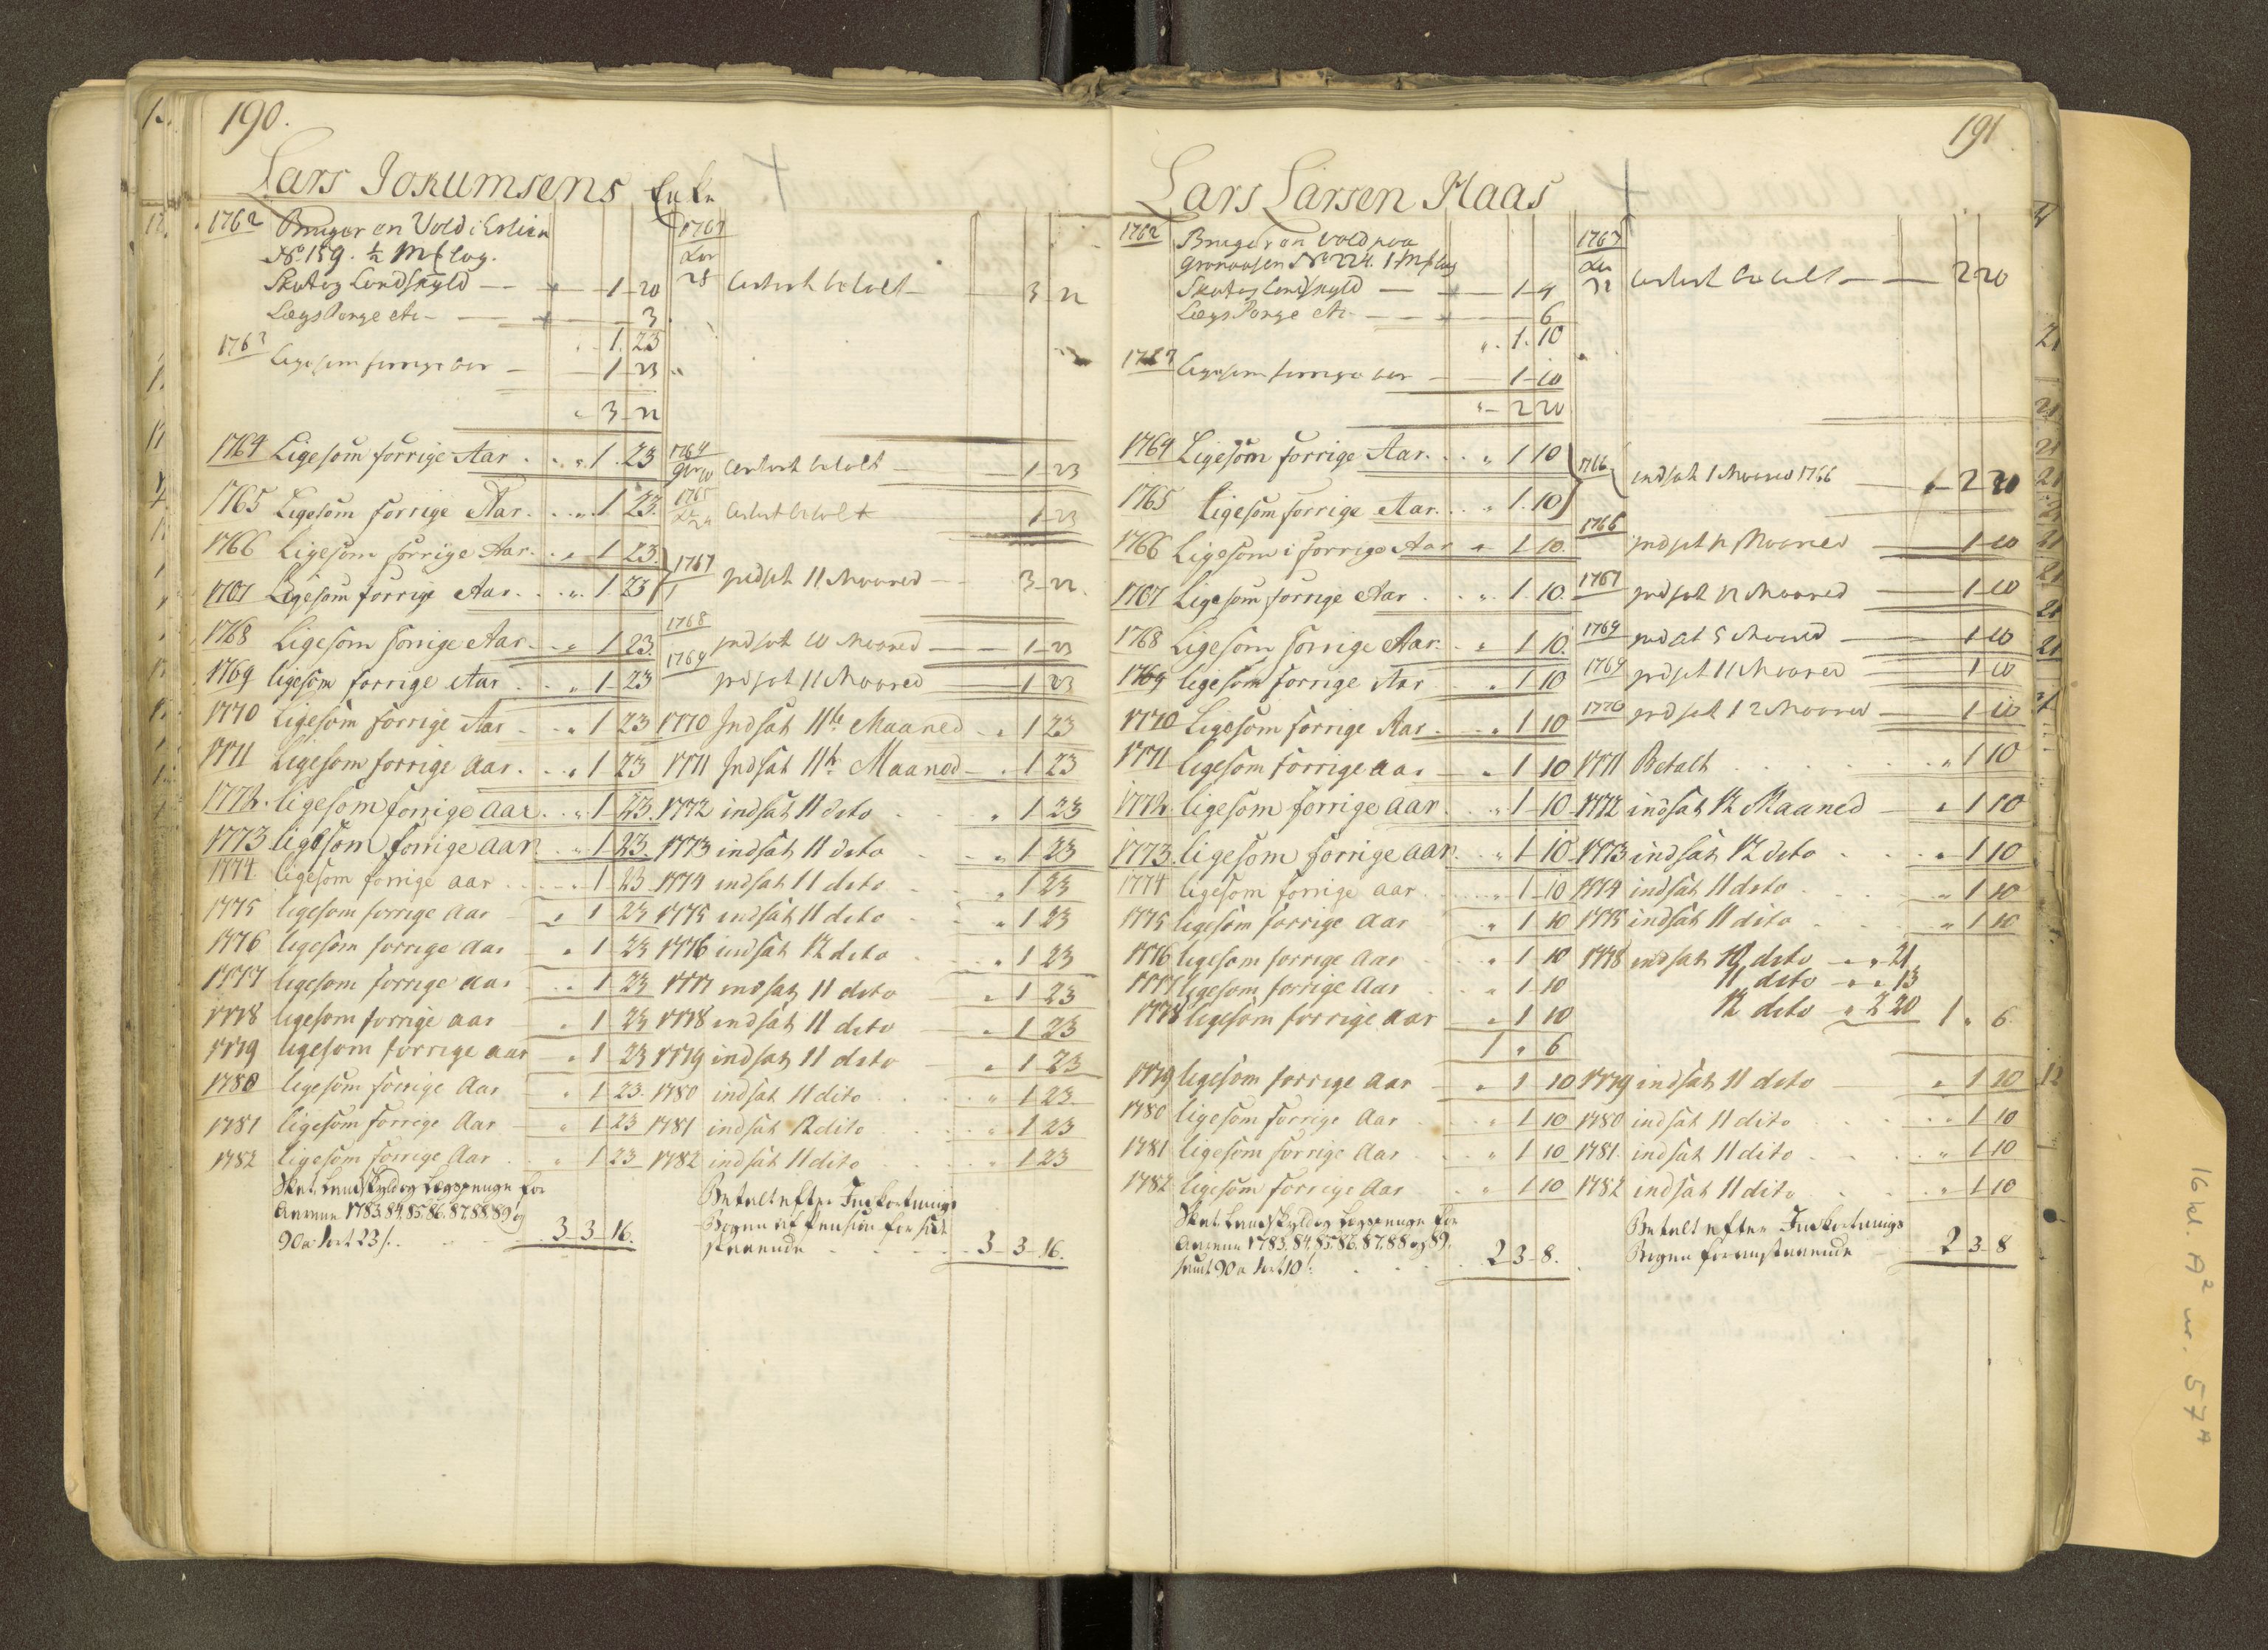 190.
Lars Jokumsens Enke
1762 Bruger en Vold i Erlien
No. 159. ½ Mk Løg.
Skat og Landskyld — 1 - 20
Lægs Penge etc - — 3
1. 23
1763 Lige som forrige Aar — 1 - 23
3 - 22
1764 Ligesom forrige Aar . . „ 1. 23
1765 Ligesom forrige Aar . . „ 1 23.
1766 Ligesom forrige Aar . . „ 1 23.
1767 Ligesom forrige Aar . . „ 1. 23
1768 Ligesom forrige Aar - - „ 1 23.
1769 ligesom forrige Aar . . „ 1 - 23
1770 Ligesom forrige Aar . . „ 1 23
1771 Ligesom forrige Aar . . „ 1 23
1772. ligesom forrige aar . . „ 1 - 23.
1773 ligesom forrige aar . „ 1 23
1774. ligesom forrige aar . . . „ 1 - 23
1775 ligesom forrige Aar - „ 1 23
1776 ligesom forrige Aar - „ 1 - 23
1777 ligesom forrige Aar . . „ 1 - 23
1778 ligesom forrige aar - „ 1 23
1779 ligesom forrige aar - „ 1 - 23
1780 ligesom forrige Aar - „ 1 - 23.
1781 ligesom forrige Aar - „ 1 23
1782 ligesom forrige Aar . „ 1 23
Skat, Landskyld og Lægspenge for
Aarene 1783. 84. 85. 86. 87. 88. 89 og
90 a 1 ort 23 s. . . 3 - 3 - 16.
1763
28 betalt — 3 - 22
1764 betalt — 1 - 23
1765 betalt 1 - 23
1767 indsat 11 Maaned — 3 - 22.
1768 indsat 10 Maaned — 1 - 23
1769 indsat 11 Maaned 1 23
1770 Indsat 11te Maaned - „ 1 23
1771 Indsat 11te Maaned - „ 1 23
1772 indsat 11 dito . . „ 1 23
1773 indsat 11 dito . . „ 1 23
1774 indsat 11 dito . . „ 1 23
1775 indsat 11 dito . . „ 1 23
1776 indsat 12 dito . . „ 1 23
1777 indsat 11 dito — „ 1 23
1778 indsat 11 dito — „ 1 23
1779 indsat 11 dito — „ 1 23
1780 indsat 11 dito . . . „ 1 23
1781 indsat 12 dito . . . „ 1 23
1782 indsat 11 dito . . . „ 1 23
Betalt efter Inkortnings
Bogen af Pension for
staaende - - - - 3 - 3 - 16.
191
Lars Larsen Haas
1762 Bruger en Vold paa
Grønaasen No. 224. 1 Mk Løg
Skat og Landskyld — 1 - 4
Lægs Penge etc - — 6
„ 1. 10
1763 Lige som forrige Aar — 1 - 10
„ - 2 20
1764 Ligesom forrige Aar . . „ 1 10
1765 Ligesom forrige Aar . . „ 1. 10
1766 Ligesom i forrige Aar „ 1 - 10.
1767 Ligesom forrige Aar . . „ 1. 10.
1768 Ligesom forrige Aar . „ 1 10.
1769 ligesom forrige Aar . „ 1 10
1770 Ligesom forrige Aar . . „ 1 10
1771 ligesom forrige aar — „ 1 10
1772. ligesom forrige aar . . „ 1 - 10
1773. ligesom forrige aar . „ 1 - 10
1774 ligesom forrige aar . . . „ 1 - 10
1775 ligesom forrige Aar . „ 1 10
1776 ligesom forrige Aar . „ 1 10
1777 ligesom forrige Aar . „ 1 - 10
1778 ligesom forrige aar - „ 1 10
1 „ 6
1779 ligesom forrige aar - „ 1 10
1780 ligesom forrige Aar . . „ 1 10
1781 ligesom forrige Aar . . „ 1 10
1782 ligesom forrige Aar . . „ 1 10
Skat, Landskyld og Lægspenge for
Aarene 1783. 84. 85. 86. 87. 88 og 89.
samt 90 a 1 ort 10 s. . . 2 3 - 8.
1763 betalt — 2 20
1766 indsat 1 Maaned 1766 — 2 20
1766 indsat 12 Maaned — 1 - 10
1767 indsat 12 Maaned — 1 - 10
1769 indsat 5 Maaned — 1 - 10
1769 indsat 11 Maaned — 1 - 10
1770 indsat 12 Maaned — 1 - 10
1771 Betalt . . . . . „ 1 10
1772 indsat 12 Maaned — „ 1 10
1773 indsat 12 dito . . „ 1 10
1774 indsat 11 dito . . „ 1 10
1775 indsat 11 dito . . „ 1 10
1778 indsat 10 dito - „ „ 21
11 dito - „ „ 13
12 dito - „ 2 20 1 „ 6.
1779 indsat 11 dito — „ 1 10
1780 indsat 11 dito . . . „ 1 10
1781. indsat 11 dito . . . „ 1 10
1782 indsat 11 dito . . . „ 1 10
Betalt efter Inkortnings
Bogen foranstaaende — 2 3 - 8
16 kl. A² nr. 57ᴬ